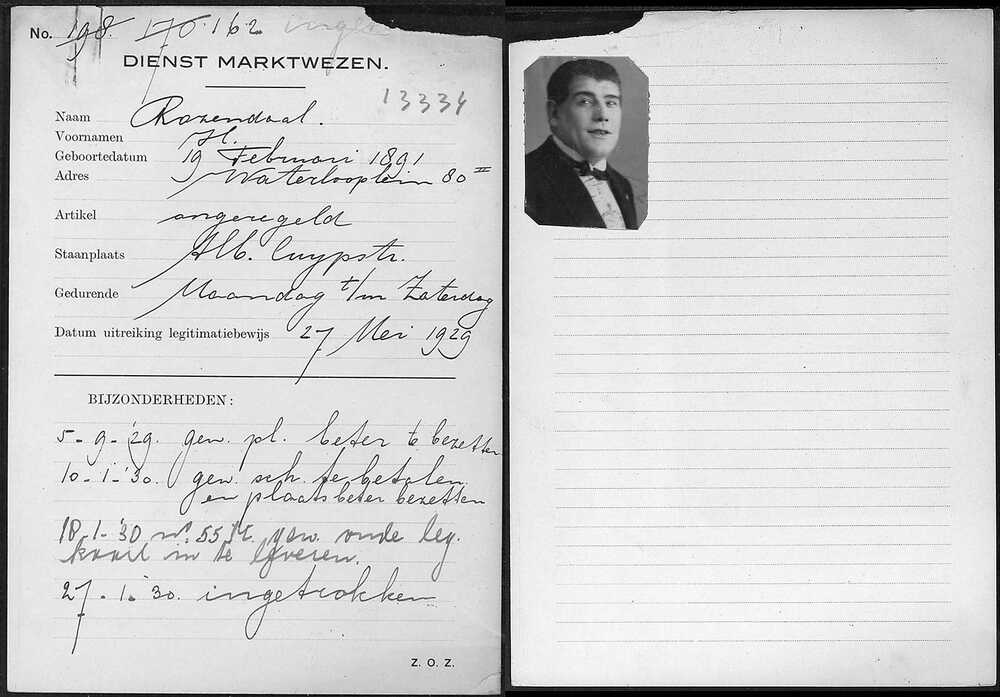 No. 198. 170. 162 inge
DIENST MARKTWEZEN.
13334
Naam Rozendaal.
Voornamen H.
Geboortedatum 19 Februari 1891
Adres Waterlooplein 80 II
Artikel ongeregeld
Staanplaats Alb. Cuypstr.
Gedurende Maandag t/m Zaterdag
Datum uitreiking legitimatiebewijs 27 Mei 1929
BIJZONDERHEDEN:
5-9-'29. gew. pl. beter te bezetten
10-1-'30. gew. sch. te betalen
en plaats beter bezetten
18-1-'30 no. 55 gew. oude leg.
kaart in te leveren.
27-1-'30. ingetrokken
Z. O. Z.